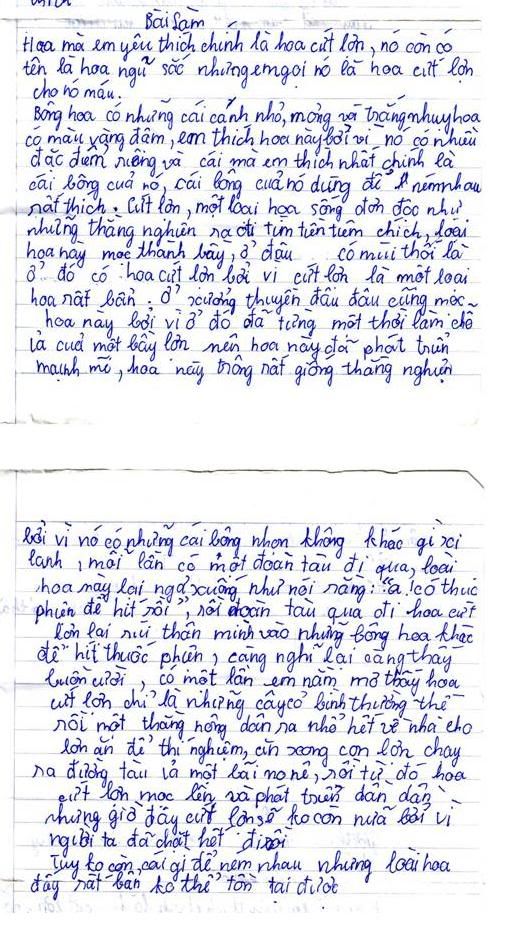 Bài làm
Hoa mà em yêu thích chính là hoa cứt lợn, nó còn có
tên là hoa ngũ sắc nhưng em gọi nó là hoa cứt lợn
cho nó máu.
Bông hoa có những cái cánh nhỏ, mỏng và trắng nhuỵ hoa
có màu vàng đậm, em thích hoa này bởi vì nó có nhiều
đặc điểm riêng và cái mà em thích nhất chính là
cái bông của nó, cái bông của nó dùng để ném nhau
rất thích. Cứt lợn, một loài hoa sống đơn độc như
những thằng nghiện ra đời tìm tiên tiêm chích, loài
hoa này mọc thành bầy, ở đâu có mùi thối là
ở đó có hoa cứt lợn bởi vì cứt lợn là một loại
hoa rất bẩn. Ở xưởng thuyền đâu đâu cũng mọc
hoa này bởi vì ở đó đã từng một thời làm chỗ
ỉa của một bầy lợn nên hoa này đã phát triển
mạnh mẽ, hoa này trông rất giống thằng nghiện
bởi vì nó có những cái bông nhọn không khác gì xi
lanh, mỗi lần có một đoàn tàu đi qua, loài
hoa này lại ngả xuống như nói rằng: "a! có thuốc
phiện để hít rồi", rồi đoàn tàu qua đi hoa cứt
lợn lại rúi thân mình vào những bông hoa khác
để hít thuốc phiện, càng nghĩ lại càng thấy
buồn cười, có một lần em nằm mơ thấy hoa
cứt lợn chỉ là những cây cỏ bình thường thế
rồi một thằng nông dân ra nhổ hết về nhà cho
lợn ăn để thí nghiệm, ăn xong con lợn chạy
ra đường tàu ỉa một bãi no nê, rồi từ đó hoa
cứt lợn mọc lên và phát triển dần dần
nhưng giờ đây cứt lợn sẽ ko còn nữa bởi vì
người ta đã chặt hết đi rồi
Tuy ko còn cái gì để ném nhau nhưng loài hoa
đấy rất bẩn ko thể tồn tại được